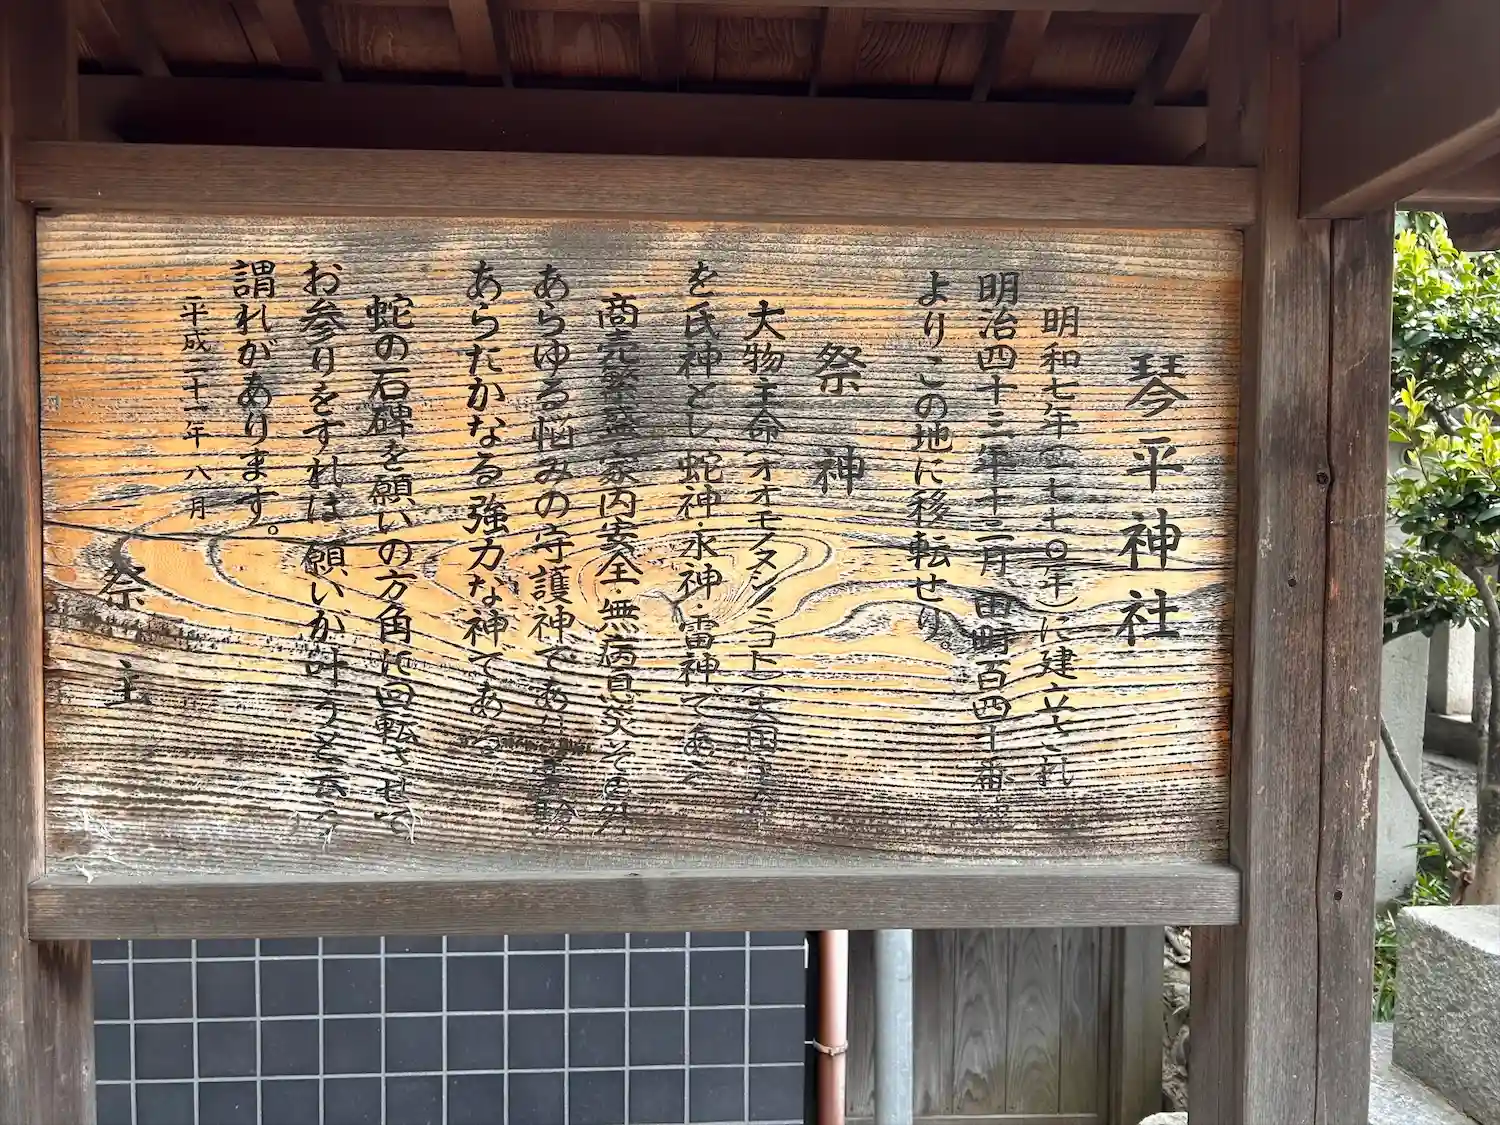 琴平神社
明和七年(一七七〇年)に建立され
明治四十三年十二月、田町百四十番
よりこの地に移転せり。
祭神
大物主命(オオモノヌシノミコト)(大国主
を氏神とし、蛇神・水神・雷神である
商売繁盛・家内安全・無病息災・その外
あらゆる悩みの守護神であり
あらたかなる強力な神である
蛇の石碑を願いの方角に回転させて
お参りをすれば、願いが叶うと云う
謂れがあります。
平成二十一年八月
祭主